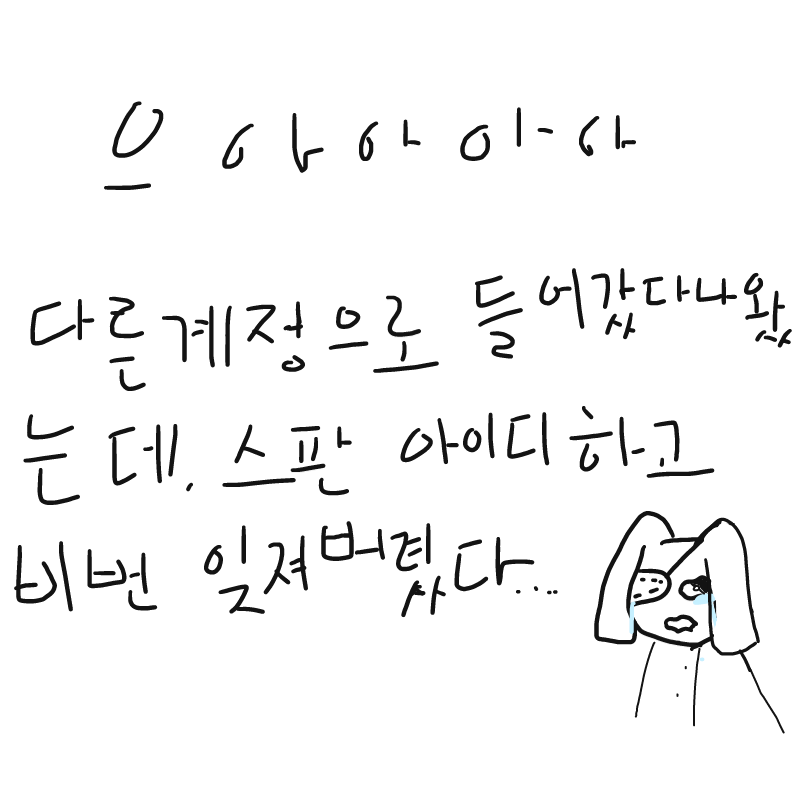 으 아 아 아 아
다른계정으로 들어갔다나왔
는데. 스판 아이디하고
비번 잊져버렸다.....